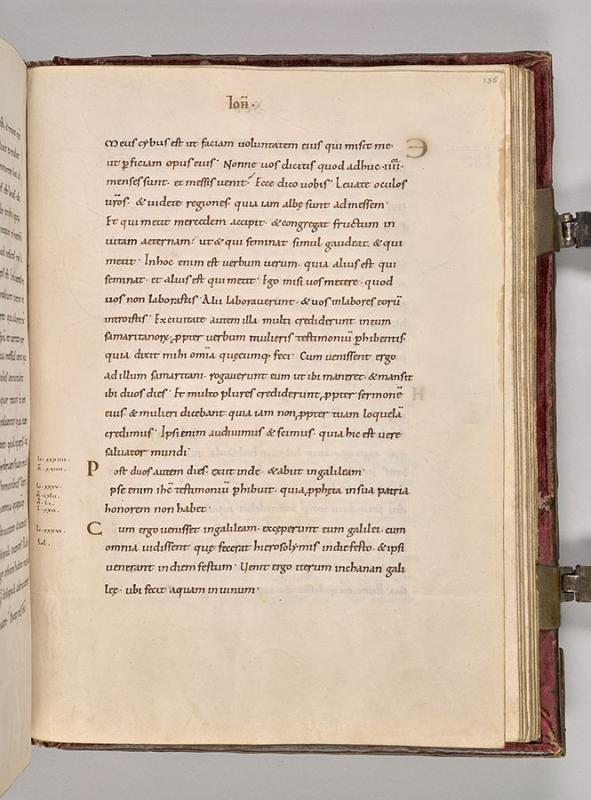 135
Ioħ·
Meus cybus est ut faciam voluntatem eius qui misit me·
ut p̄ficiam opus eius· Nonne uos dicitis quod adhuc ·iiii·
menses sunt· et messis uenit? Ecce dico uobis· Leuate oculos
uṙos· & uidete regiones quia iam albę sunt ad messem·
Et qui metit mercedem accipit· & congregat fructum in
uitam aeternam· ut & qui seminat simul gaudeat, & qui
metit· In hoc enim est uerbum uerum· quia alius est qui
seminat· et alius est qui metit· Ego misi uos metere· quod
uos non laborastis· Alii laborauerunt· & uos in labores eorū
introistis· Ex ciuitate autem illa multi crediderunt in eum
samaritanorꝝ, ꝓpter uerbum mulieris testimoniū ꝑhibentis
quia dixit mihi om̄ia quęcumq; feci· Cum uenissent ergo
ad illum samaritani· rogauerunt eum ut ibi maneret· & mansit
ibi duos dies· Et multo plures crediderunt, ꝓpter sermonē
eius· & mulieri dicebant· quia iam non ꝓpter tuam loquelā
credimus· Ipsi enim audiuimus & scimus· quia hic est uere
saluator mundi·
Post duos autem dies· exiit inde· & abiit in galileam·
pse enim ihc̄ testimoniū ꝑhibuit· quia ꝓpheta in sua patria
honorem non habet·
Cum ergo uenisset in galileam· exceperunt eum galilei· cum
omnia uidissent quę fecerat hierosolymis in die festo· & ipsi
uenerant in diem festum· Uenit ergo iterum in chanan gali
lęę· ubi fecit aquam in uinum·